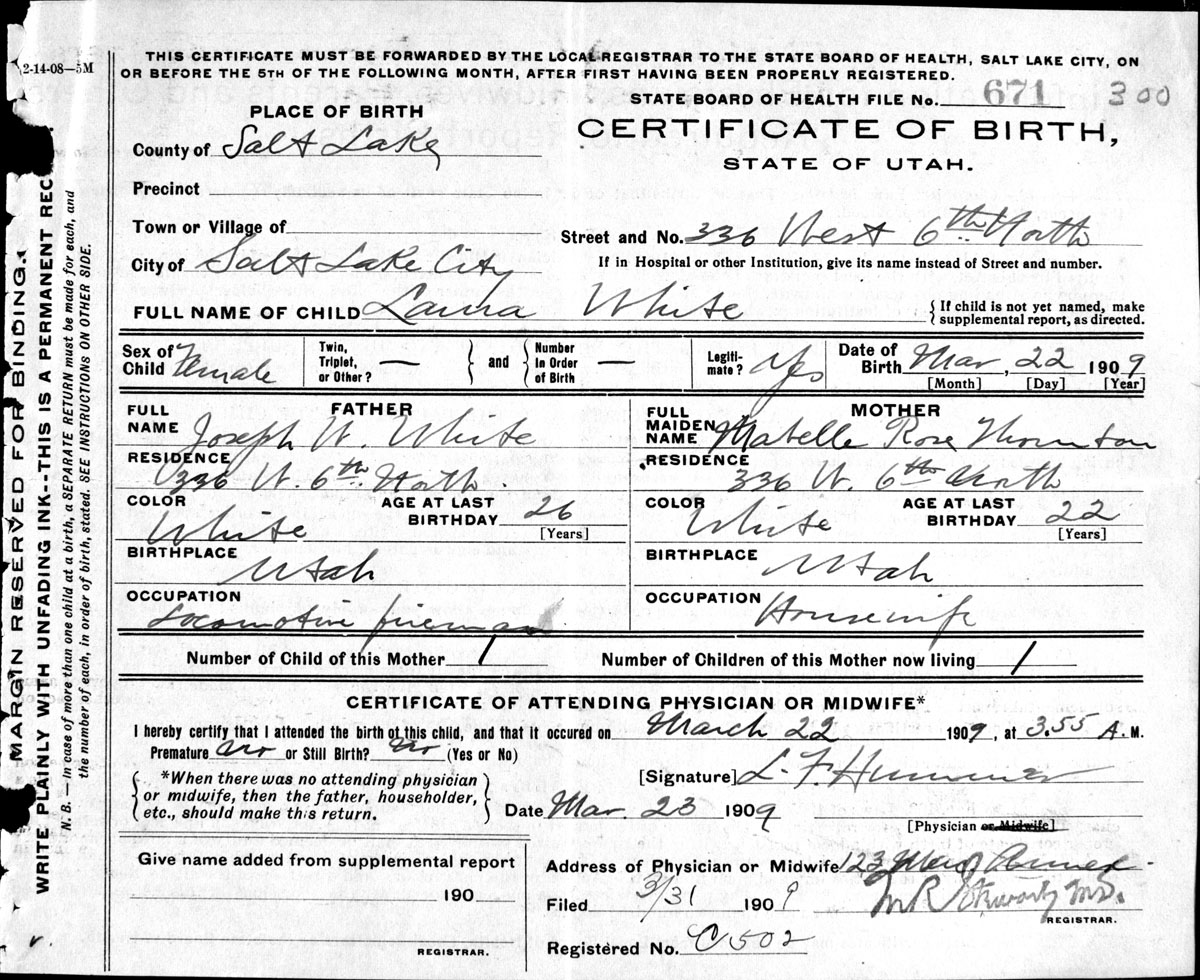 2-14-08—5M
THIS CERTIFICATE MUST BE FORWARDED BY THE LOCAL REGISTRAR TO THE STATE BOARD OF HEALTH, SALT LAKE CITY, ON
OR BEFORE THE 5TH OF THE FOLLOWING MONTH, AFTER FIRST HAVING BEEN PROPERLY REGISTERED.
STATE BOARD OF HEALTH FILE No. 671 300
CERTIFICATE OF BIRTH,
STATE OF UTAH.
PLACE OF BIRTH
County of Salt Lake
Precinct
Town or Village of
Street and No. 336 West 6th North
City of Salt Lake City
If in Hospital or other Institution, give its name instead of Street and number.
FULL NAME OF CHILD Laura White
{If child is not yet named, make
supplemental report, as directed.
Sex of Child Female
Twin, Triplet, or Other? —
and
Number In Order of Birth —
Legitimate? Yes
Date of Birth Mar, 22 1909
[Month] [Day] [Year]
FATHER
FULL NAME Joseph W. White
RESIDENCE 336 W. 6th North
COLOR White
AGE AT LAST BIRTHDAY 26
[Years]
BIRTHPLACE Utah
OCCUPATION Locomotive fireman
MOTHER
FULL MAIDEN NAME Mabelle Rose Thornton
RESIDENCE 336 W. 6th North
COLOR White
AGE AT LAST BIRTHDAY 22
[Years]
BIRTHPLACE Utah
OCCUPATION Housewife
Number of Child of this Mother 1
Number of Children of this Mother now living 1
CERTIFICATE OF ATTENDING PHYSICIAN OR MIDWIFE*
I hereby certify that I attended the birth of this child, and that it occured on March 22 1909, at 3.55 A.M.
Premature No or Still Birth? No (Yes or No)
*When there was no attending physician
or midwife, then the father, householder,
etc., should make this return.
[Signature] L. F. Hummer
Date Mar. 23 1909
[Physician or Midwife]
Give name added from supplemental report
190
REGISTRAR.
Address of Physician or Midwife 123
Filed 3/31 1909
M R Stewart M.D.
REGISTRAR.
Registered No. C502
MARGIN RESERVED FOR BINDING.
WRITE PLAINLY WITH UNFADING INK--THIS IS A PERMANENT REC
N. B.—In case of more than one child at a birth, a SEPARATE RETURN must be made for each, and
the number of each, in order of birth, stated. SEE INSTRUCTIONS ON OTHER SIDE.